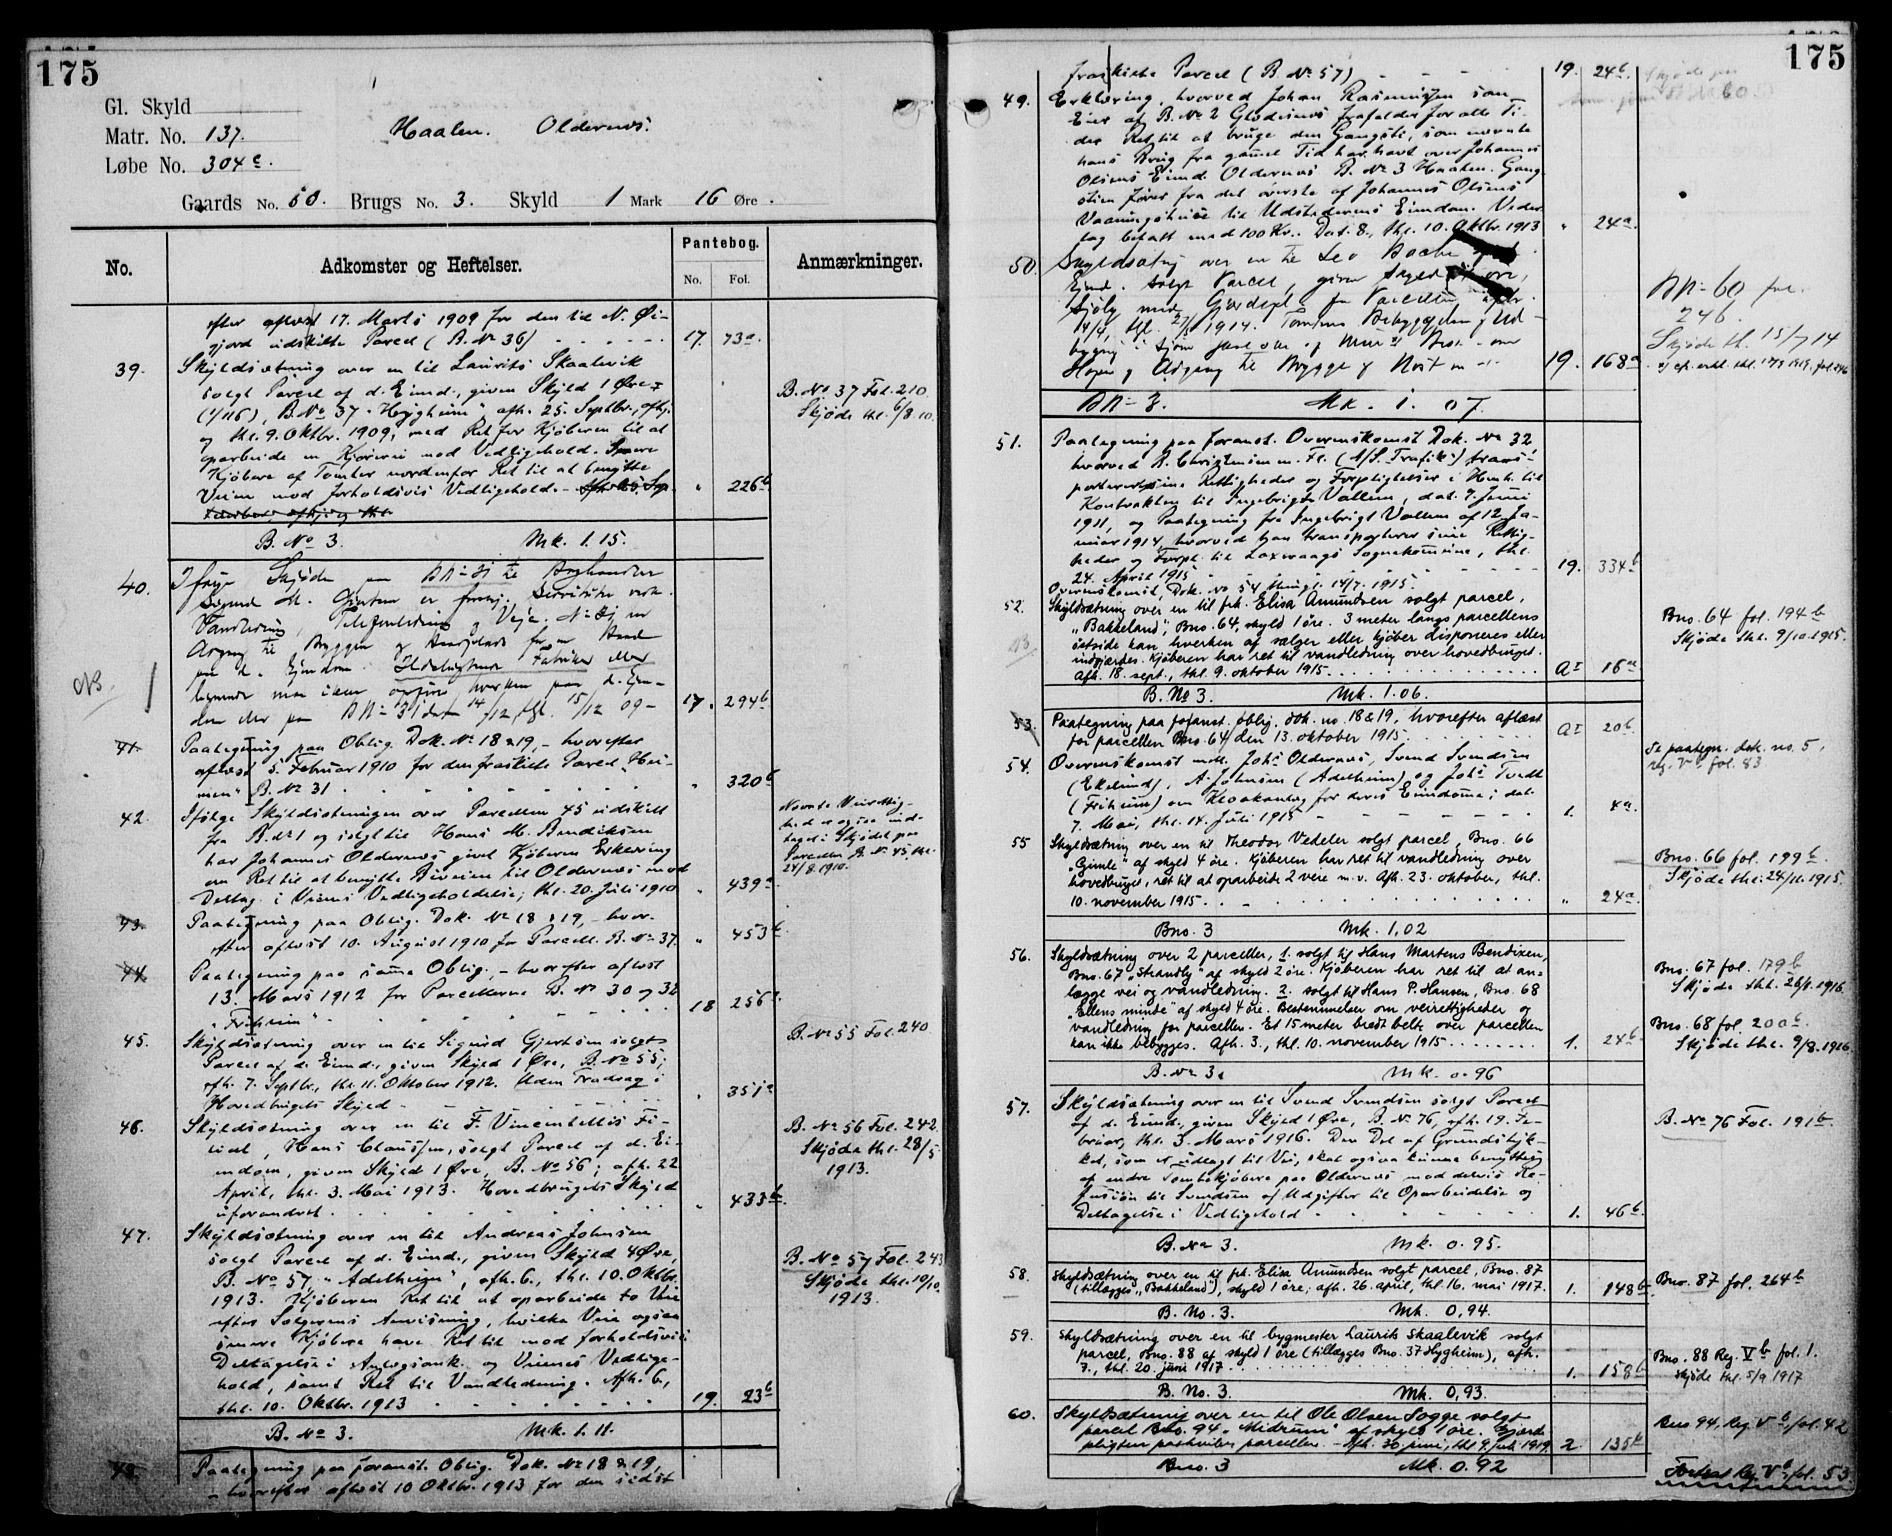 175
Gl. Skyld
Matr. No. 137.
Løbe No. 304 c.
Haalen. Oldernes.
Gaards No. 50. Brugs No. 3. Skyld 1 Mark 16 Øre.
No. Adkomster og Heftelser. Pantebog. No. Fol. Anmærkninger.
efter aflæst 17. Marts 1909 for den til N. Øi-
gjord udskilte Parcel (B. No 36) 17. 73a.
39. Skyldsætning over en til Laurits Skaalevik
solgt Parcel af d. Eiend., given Skyld 1 Øre
(1/116), B. No 37 "Høygheim" afh. 25. Septbr., afhj.
og thl. 9. Oktbr. 1909, med Ret for Kjøberen til at
oparbeide en Kjørevei mod Vedligehold. Senere
Kjøbere af Tomter nordenfor Ret til at benytte
Veien mod forholdsvis Vedligehold. " 226b
B. No 37 Fol. 210.
Skjøde thl. 6/8 10.
B. No 3. Mk. 1.15.
40. Ifølge Skjøde paa BN 31 til
Sigurd M. Gjertsen er
Vandledning, Telefonledning og Veje.
Adgang til Bryggen og
paa d. Eiendom. Ildsfarlige Fabriker eller
lignende maa ikke opføres hverken paa d. Eien-
dom eller paa BN 31 dat 14/12, thl. 15/12 09 17. 294b
NB.
41. Paategning paa Oblig. Dok. No 18 & 19, - hvorefter
aflæst 5. Februar 1910 for den fraskilte Parcel "Hei-
men" B. No 31 " 320b
42. Ifølge Skyldsætningen over Parcellen 45 udskilt
fra B. No 1 og solgt til Hans M. Bendiksen
har Johannes Oldernes givet Kjøberen Erklæring
om Ret til at benytte Biveien til Oldernes mod
Deltag. i Veiens Vedligeholdelse; thl. 20. Juli 1910 " 439a
Nævnte Veirettig-
hed er ogsaa ind-
taget i Skjødet paa
Parcellen B. No 45, thl.
24/8 1910.
43. Paategning paa Oblig. Dok. No 18 & 19, - hvor-
efter aflæst 10. August 1910 for Parcell. B. No 37. " 453b
44. Paategning paa samme Oblig., - hvorefter aflæst
13. Mars 1912 for Parcellerne B. No 30 og 32
"Friheim" 18 256a.
45. Skyldsætning over en til Sigurd Gjertsen solgt
Parcel af d. Eiend., given Skyld 1 Øre, B. No 55,
afh. 7. Septbr., thl. 11. Oktober 1912. Uden Fradrag i
Hovedbrugets Skyld " 351a
B. No 55 Fol. 240
46. Skyldsætning over en til F. Vincentellis Fi-
lial, Hans Claussen, solgt Parcel af d. Ei-
endom, given Skyld 1 Øre, B. No 56; afh. 22
April, thl. 3. Mai 1913. Hovedbrugets Skyld
uforandret " 433b
B. No 56 Fol. 242
Skjøde thl. 28/5
1913.
47. Skyldsætning over en til Andreas Johnsen
solgt Parcel af d. Eiend., given Skyld 4 Øre,
B. No 57 "Adelheim", afh. 6., thl. 10. Oktbr.
1913. Kjøberen Ret til at oparbeide to Veie
efter Sælgerens Anvisning, hvilke Veie ogsaa
senere Kjøbere have Ret til mod forholdsvis
Deltagelse i Anlægsomk. og Veienes Vedlige-
hold, samt Ret til Vandledning. Afh. 6.,
thl. 10. Oktbr. 1913 19. 23b
B. No 57 Fol. 243
Skjøde thl. 10/10.
1913.
B. No 3. Mk. 1.11.
48. Paategning paa foranst. Oblig. Dok. No 18 & 19,
- hvorefter aflæst 10 Oktbr. 1913 for den sidst
175
fraskilte Parcel (B. No 57) 19. 24b.
49. Erklæring, hvorved Johan Rasmussen som
Eier af B. No 2 Glodesnes frafalder for alle Ti-
der Ret til at bruge den Gangsti, som nævnte
hans Brug fra gamel Tid har havt over Johannes
Olsens Eiend. Oldernes B. No 3 Haalen. Gang-
stien fører fra det øverste af Johannes Olsens
Vaaningshuse til Udstederens Eiendom. Veder-
lag betalt med 100 Kr. Dat. 8., thl. 10. Oktbr. 1913 " 24a.
50. Skyldsætng over en til Leo
Eiend. solgt Parcel, given Skyld øre,
med Gjerdepl. for Parcellen, afh.
14/4, thl. 27/5 1914.
og Adgang til Brygge og Nøst 19. 168a
BN 60 fol.
246.
Skjøde thl. 15/7 14
BN 3. Mk. 1.07.
51. Paategning paa foranst. Overenskomst Dok. No 32
hvorved R. Christensen m. Fl. (A/S. "Trafik") trans-
porterer sine Rettigheder og Forpligtelser i Henh. til
Kontrakten til Ingebrigt Vallem, dat. 7. Juni
1911, og Paategning fra Ingebrigt Vallem af 12. Ja-
nuar 1914, hvorved han transporterer sine Rettig-
heder og Forpl. til Laxevaags Sognekommune, thl.
24. April 1915 19. 334b
Overenskomst, Dok. no 54 thingl. 14/7. 1915.
52. Skyldsætning over en til frk. Elisa Amundsen solgt parcel,
"Bakkeland", Bno. 64, skyld 1 øre. 3 meter langs parcellens
østside kan hverken af sælger eller kjøber disponeres eller
indgjerdes. Kjøberen har ret til vandledning over hovedbruget.
Afh. 18. sept., thl. 9. oktober 1915 AI 16a
NB
Bno. 64 fol. 194b
Skjøde thl. 9/10.1915.
B. No 3. Mk. 1.06.
53. Paategning paa foranst. oblig. dok. no. 18 & 19, hvorefter aflæst
for parcellen Bno. 64 den 13. oktober 1915 AI 20b
54. Overenskomst mell. Johs. Oldernes, Svend Svendsen
(Ekelund), A. Johnsen (Adelheim) og Johs. Tvedt
(Friheim) om Kloakanlæg for deres Eiendome; dat.
7. Mai, thl. 14. Juli 1915 1. 4a.
Se paategn. dok. no. 5,
reg. Vb fol. 83
55 Skyldsætning over en til Theodor Vedeler solgt parcel, Bno. 66
"Gimle" af skyld 4 øre. Kjøberen har ret til vandledning over
hovedbruget, ret til at oparbeide 2 veie m.v. Afh. 23. oktober, thl.
10. november 1915 " 24a
Bno. 66 fol. 199b.
Skjøde thl. 24/11.1915.
Bno. 3 Mk. 1,02
56. Skyldsætning over 2 parceller, 1. solgt til Hans Martens Bendixen,
Bno. 67 "Strandly" af skyld 2 øre. Kjøberen har ret til at an-
lægge vei og vandledning. 2. solgt til Hans P. Hansen, Bno. 68
"Ellens minde" af skyld 4 øre. Bestemmelser om veirettigheder og
vandledning for parcellen. Et 15 meter bredt belte over parcellen
kan ikke bebygges. Afh. 3., thl. 10. november 1915 1. 24b
Bno. 67 fol. 179b
Skjøde thl. 26/1.1916.
Bno. 68 fol. 200b.
Skjøde thl. 9/8.1916
B. No 3. Mk. 0.96
57. Skyldsætning over en til Svend Svendsen solgt Parcel
af d. Eiend., given Skyld 1 Øre, B. No 76, afh. 19. Fe-
bruar, thl. 3. Mars 1916. Den Del af Grundstyk-
ket, som er udlagt til Vei, skal ogsaa kunne benyttes
af andre Tomtekjøbere paa Oldernes mod delvis Re-
fusion til Svendsen af Udgifter til Oparbeidelse og
Deltagelse i Vedligehold 1. 46b.
B. No 76 Fol. 191b.
B. No 3. Mk. 0.95.
58. Skyldsætning over en til frk. Elisa Amundsen solgt parcel, Bno. 87
(tillægges "Bakkeland"), skyld 1 øre; afh. 26. april, thl. 16. mai 1917. 1. 148b
Bno. 87 fol. 264b
B. No. 3. Mk. 0,94.
59. Skyldsætning over en til bygmester Laurits Skaalevik solgt
parcel, Bno. 88 af skyld 1 øre (tillægges Bno. 37 Hygheim), afh.
7., thl. 20. juni 1917 1. 158b
Bno. 88 Reg. Vb fol. 1.
Skjøde thl. 5/9 1917
B. No. 3. Mk. 0,93.
60. Skyldsætning over en til Ole Olsen Sogge solgt
parcel Bno. 94 "Midrum" af skyld 1 øre. Gjerde-
pligten paahviler parcellen. - Afh. 30 juni, thl 9. juli 1919. 2 135b
Bno 94, Reg. Vb, fol. 42
Bno. 3 Mk. 0.92
Fortsat Reg. Vb, fol. 53.